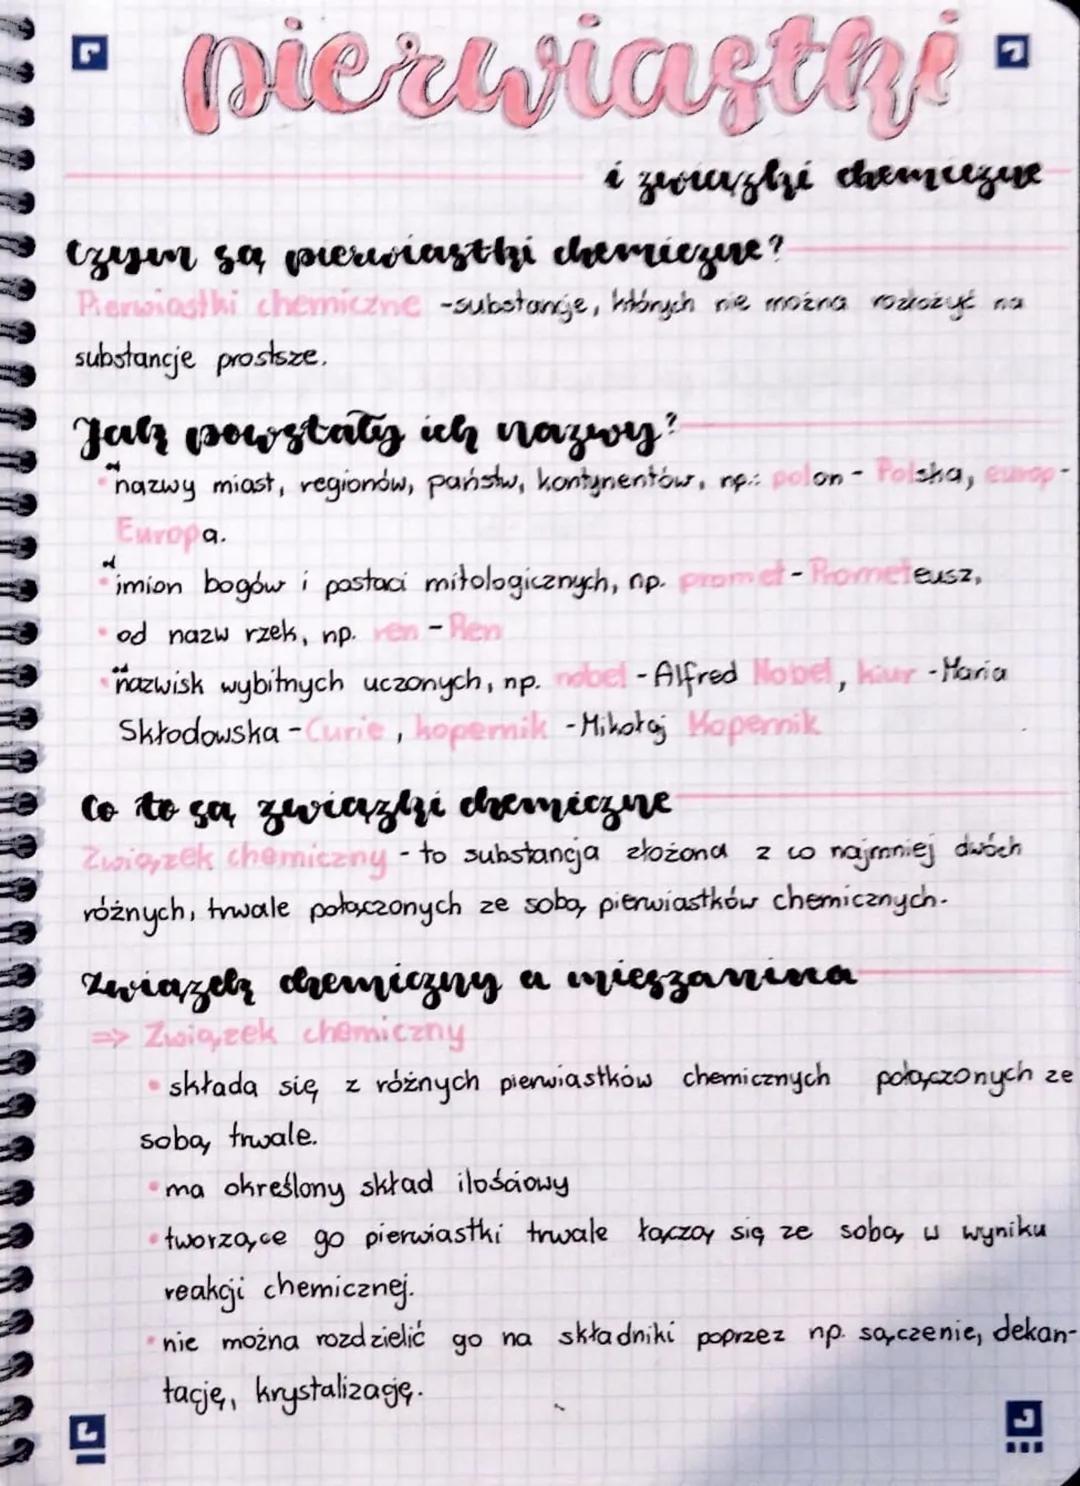 pierwiastki
i związki chemiczne
Czym są pierwiastki chemiczne?
Pierwiastki chemiczne -substancje, których nie można rozłożyć na
substancje prostsze.
Jak powstały ich nazwy?
• od nazwy miast, regionów, państw, kontynentów, np.: polon - Polska, europ -
Europa.
• od imion bogów i postaci mitologicznych, np. promet - Prometeusz,
• od nazw rzek, np. ren - Ren
• od nazwisk wybitnych uczonych, np. nobel - Alfred Nobel, kiur - Maria
Skłodowska - Curie, kopernik - Mikołaj Kopernik
Co to są związki chemiczne
Związek chemiczny - to substancja złożona z co najmniej dwóch
różnych, trwale połączonych ze sobą pierwiastków chemicznych.
Związek chemiczny a mieszanina
=> Związek chemiczny
• składa się z różnych pierwiastków chemicznych połączonych ze
sobą trwale.
• ma określony skład ilościowy
• tworzące go pierwiastki trwale łączą się ze sobą w wyniku
reakcji chemicznej.
• nie można rozdzielić go na składniki poprzez np. sączenie, dekan-
tację, krystalizację.